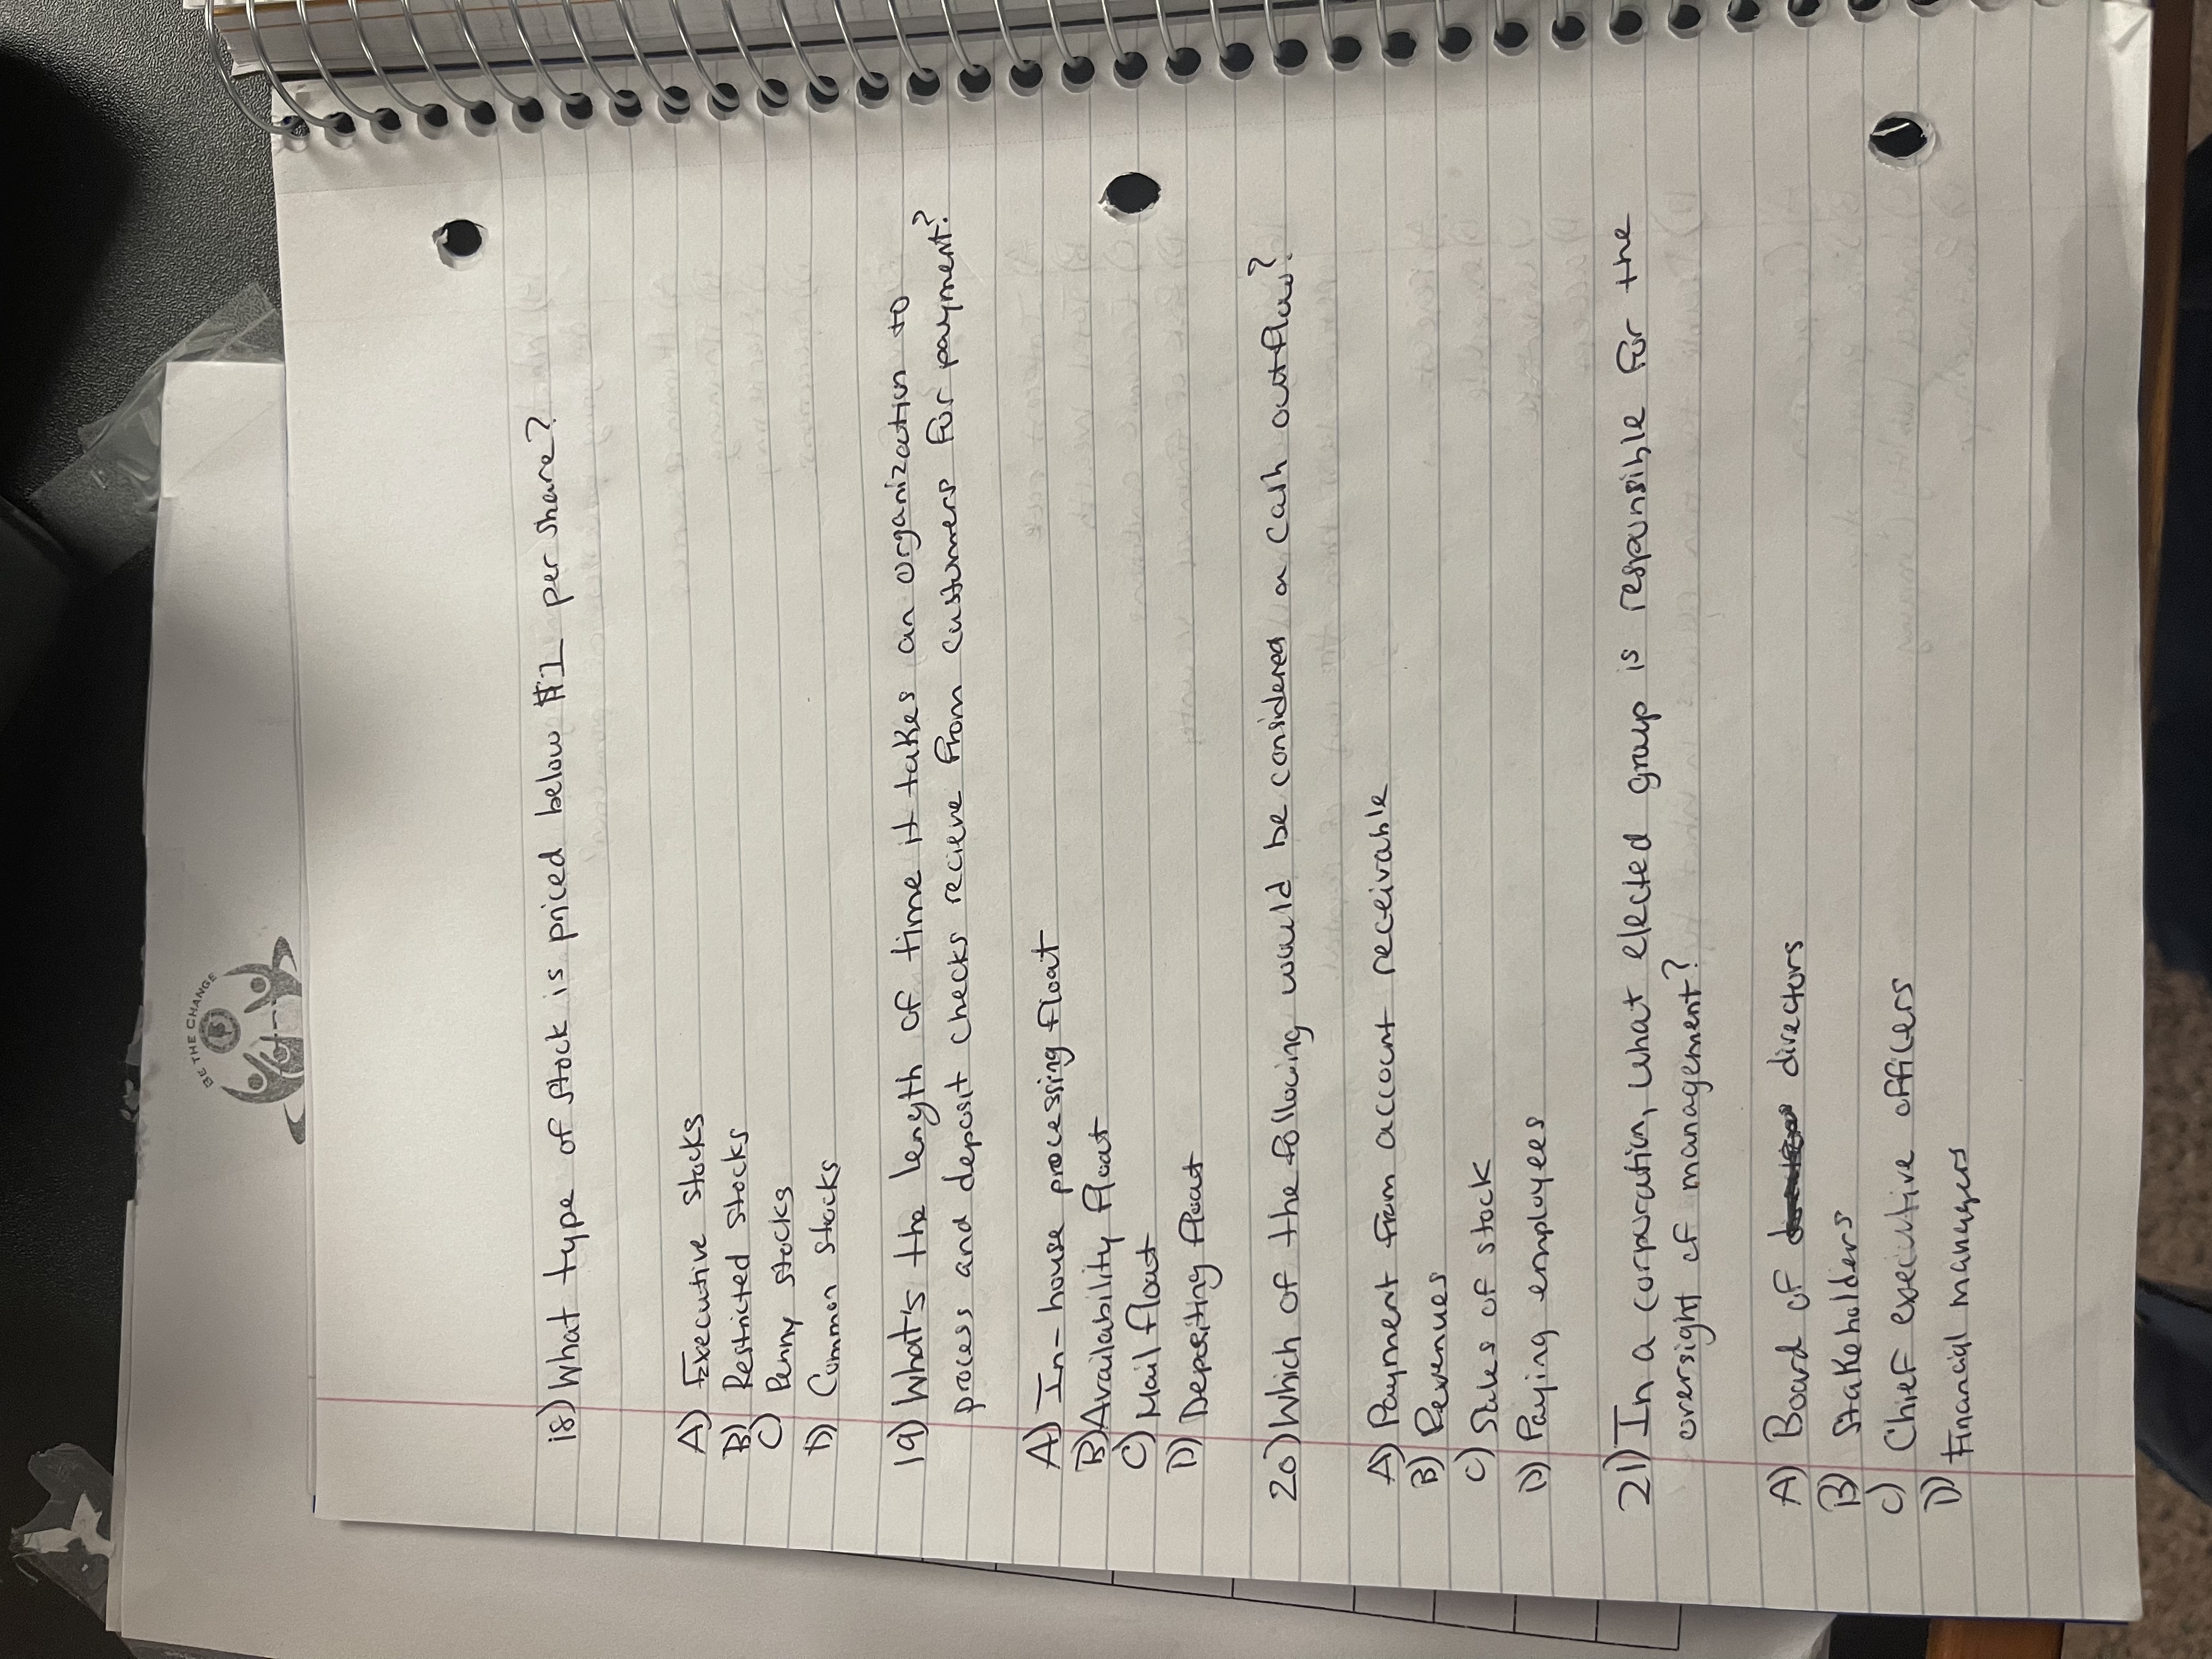 BE THE CHANGE
18) What type of stock is priced below $1 per share?
A) Executive stocks
B) Restricted stocks
C) Penny stocks
D) Common stocks
19) What's the length of time it takes an organization to
process and deposit checks recieve from customers for payment?
A) In-house processing float
B) Availability float
C) Mail float
D) Depositing float
20) Which of the following would be considered a cash outflow?
A) Payment from account receivable
B) Revenues
C) Sales of stock
D) Paying employees
21) In a corporation, what elected group is responsible for the
oversight of management?
A) Board of directors
B) Stakeholders
C) Chief executive officers
D) Financial managers